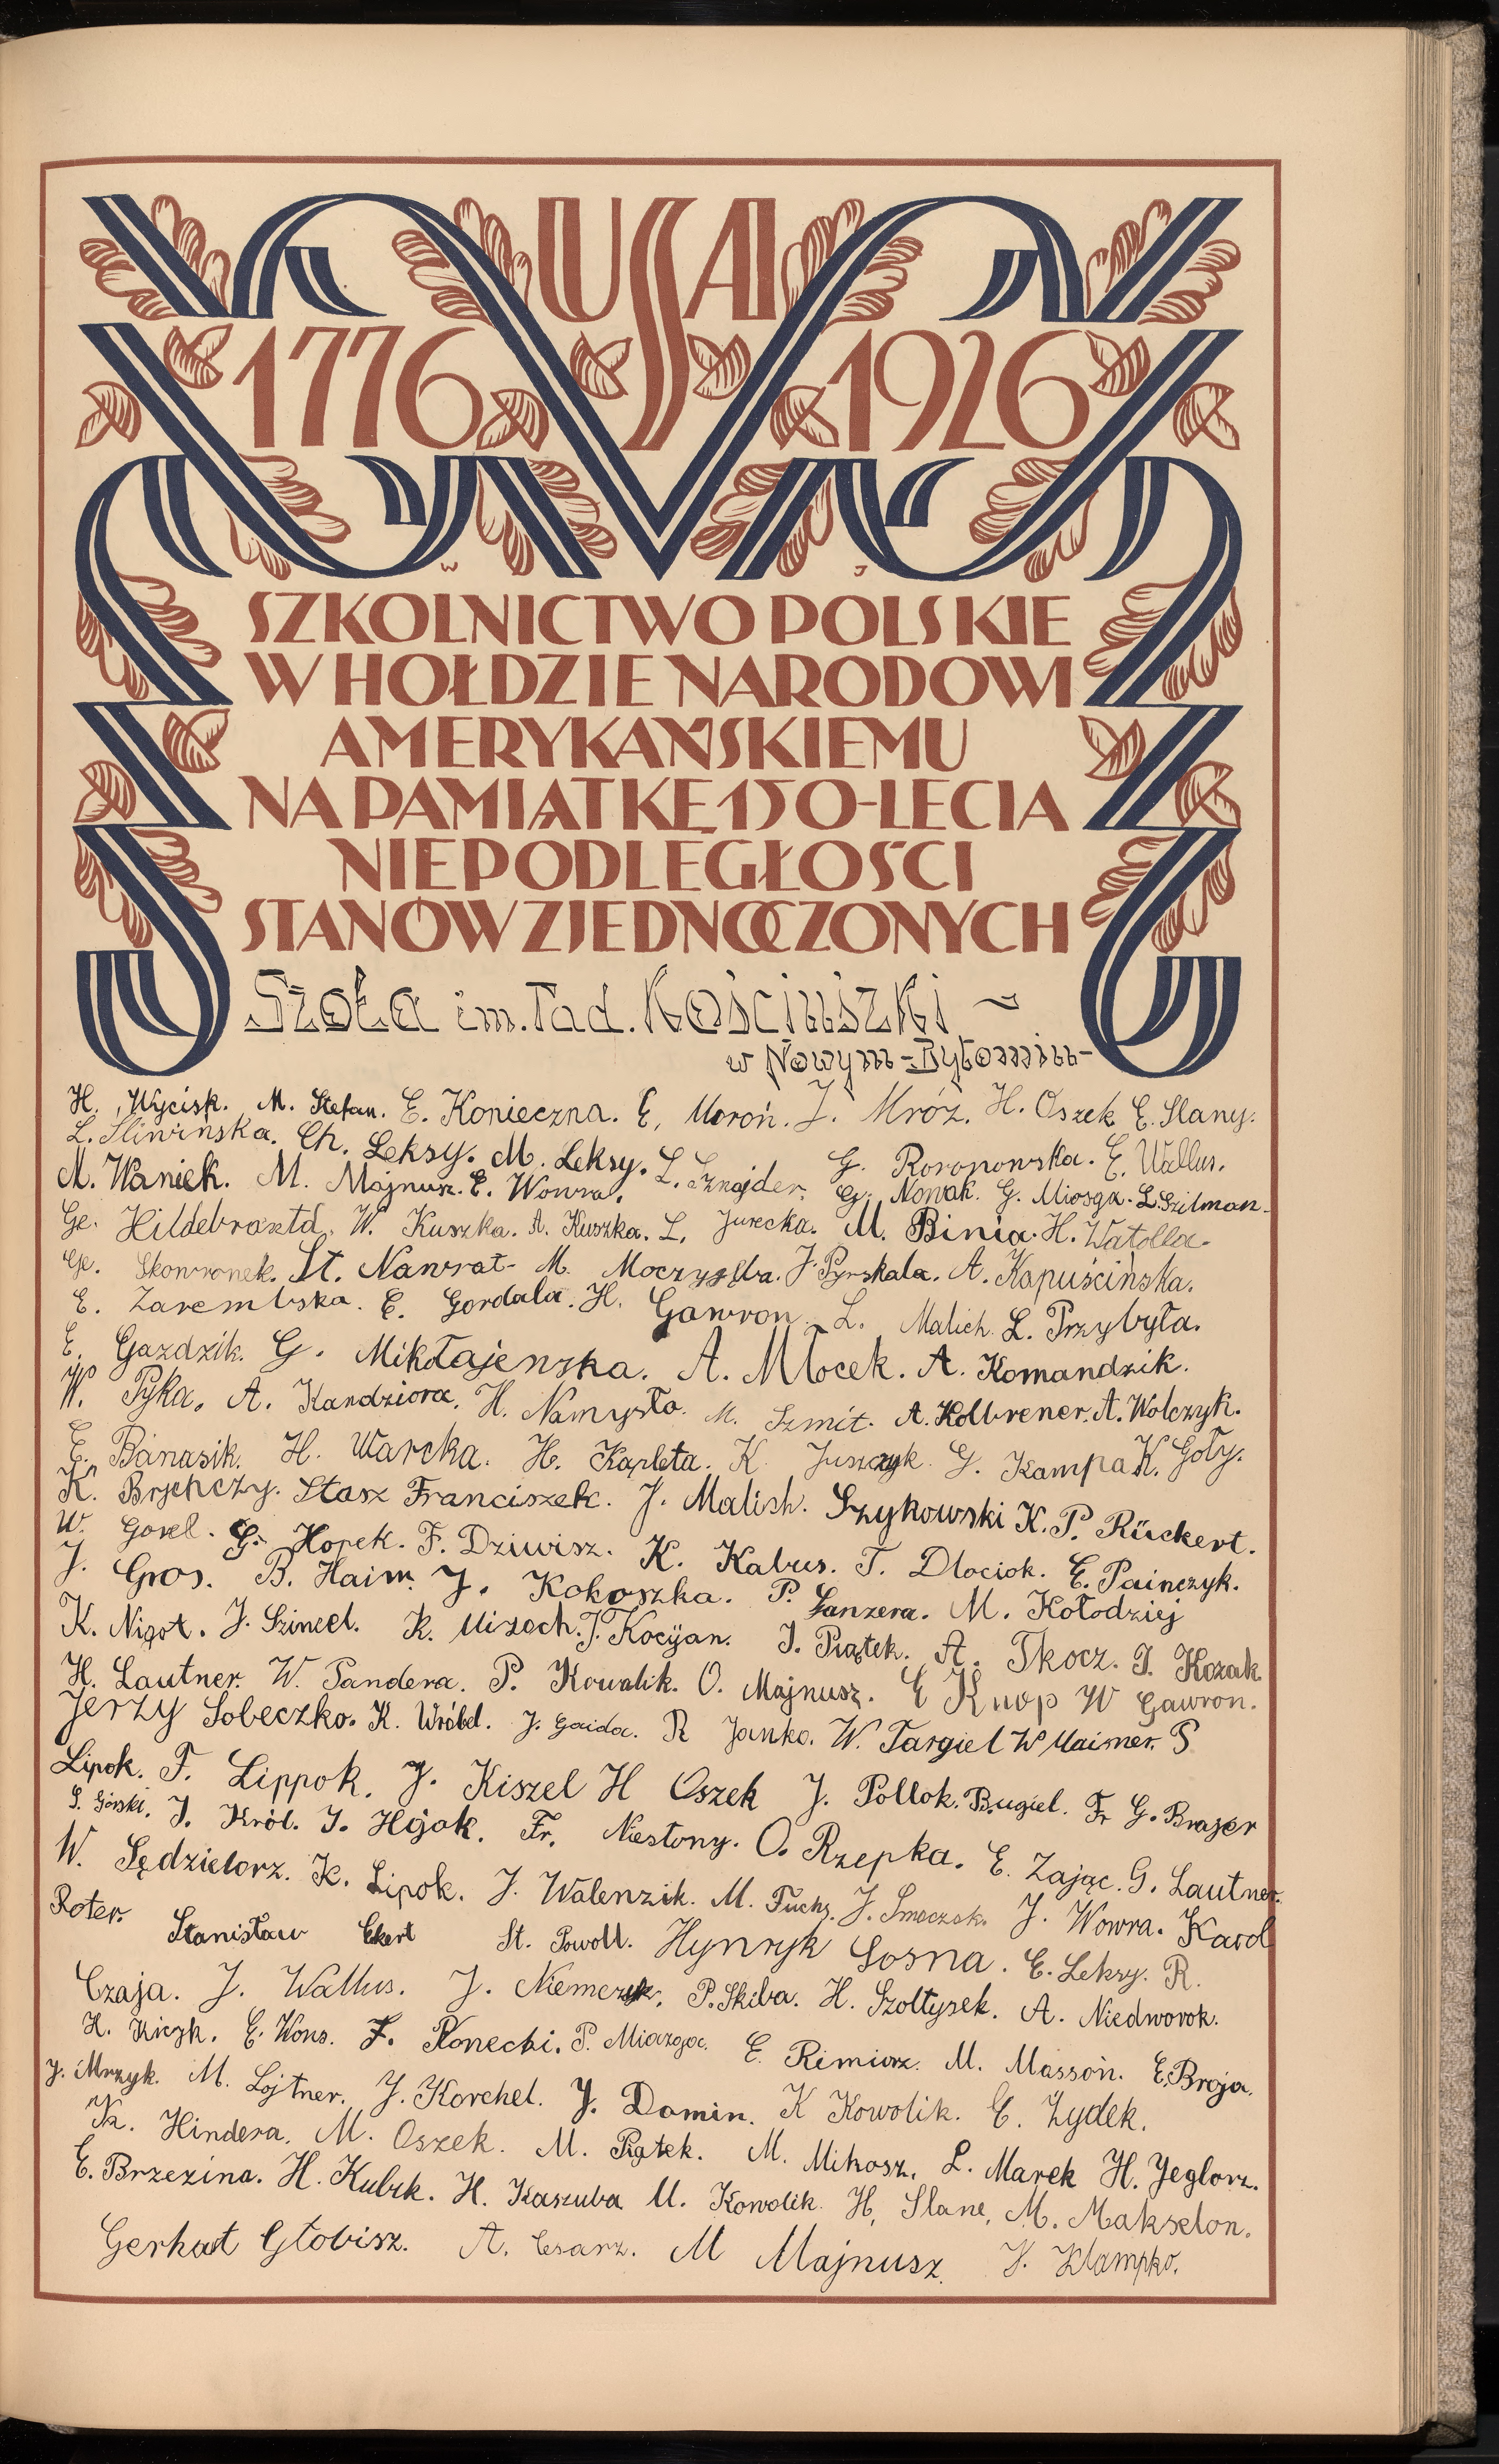 USA
1776 1926
W J
SZKOLNICTWO POLSKIE
W HOŁDZIE NARODOWI
AMERYKAŃSKIEMU
NA PAMIĄTKĘ 150-LECIA
NIEPODLEGŁOŚCI
STANÓW ZJEDNOCZONYCH
Szoła im. Tad. Kościuszki ~
w Nowym-Bytomiu-
H. Wycisk. M. Stefan. E. Konieczna. E. Moroń. J. Mróz. H. Oszek E. Slany.
L. Śliwińska. Ch. Leksy. M. Leksy. L. Sznajder. G. Roronowska. E. Wallus.
M. Waniek. M. Majnusz. E. Wowra. G. Nowak. G. Miosga. L. Szilman.
Ge. Hildebrantd. W. Kuszka. A. Kuszka. L. Jurecka. M. Binia. H. Watolla.
Ge. Skowronek. St. Nawrat. M. J. Pyrskala. A. Kapuścińska.
E. Zarembska. E. Gordala. H. Gawron. L. Malich. L. Przybyła.
E. Gazdzik. G. Mikłajenska. A. Młocek. A. Komandzik.
W. Pyka. A. Kandziora. H. Namysło. M. Szmit. A. Kolbrener. A. Wolczyk.
E. Banasik. H. Warcka. H. Karleta. K. Juszczyk. G. Kampa K. Goły.
K. Brjenczy. Stasz Franciszek. J. Malish. Szykowski K. P. Rückert.
W. Gorel. G. Horek. F. Dziwisz. K. Kabus. T. Dlociok. E. Painczyk.
J. Gros. B. Haim. J. Kokoszka. P. Lanzera. M. Kołodziej
K. Nigot. J. Szincel. R. Mizoch. J. Kocijan. J. Piątek. A. Tkocz. J. Kozak.
H. Lautner. W. Pandera. P. Kowalik. O. Majnusz. E Knop W Gawron.
Jerzy Sobeczko. K. Wróbel. J. Gaida. R Janko. W. Targiel W Maimer. P
Lipok. F. Lippok. J. Kiszel H Oszek J. Pollok. Bugiel. Fr G. Brajer
S. Górski. J. Król. J. Hajok. Fr. Niestony. O. Rzepka. E. Zając. G. Lautner.
W. Sędzielorz. K. Lipok. J. Walenzik. M. Fuchs. J. Smaczok. J. Wowra. Karol
Roter. Stanisław Ekert St. Powoll. Hynryk Sosna. E. Leksy. R.
Czaja. J. Wallus. J. Niemczyk. P. Skiba. H. Szoltysek. A. Niedworok.
H. Kiczk. E. Wons. F. Konecki. P. Miazgoc. E. Remiorz. M. Massoń. E. Broja.
J. Mrzyk. M. Lojtner. J. Korchel. J. Domin. K Kowolik. E. Zydek.
K. Hindera. M. Oszek. M. Piątek. M. Mikosz. L. Marek H. Jeglorz.
E. Brzezina. H. Kubik. H. Kaszuba M. Kowolik. H. Slane. M. Makselon.
Gerhat Globisz. A. Cesarz. M Majnusz. J. Klampko.